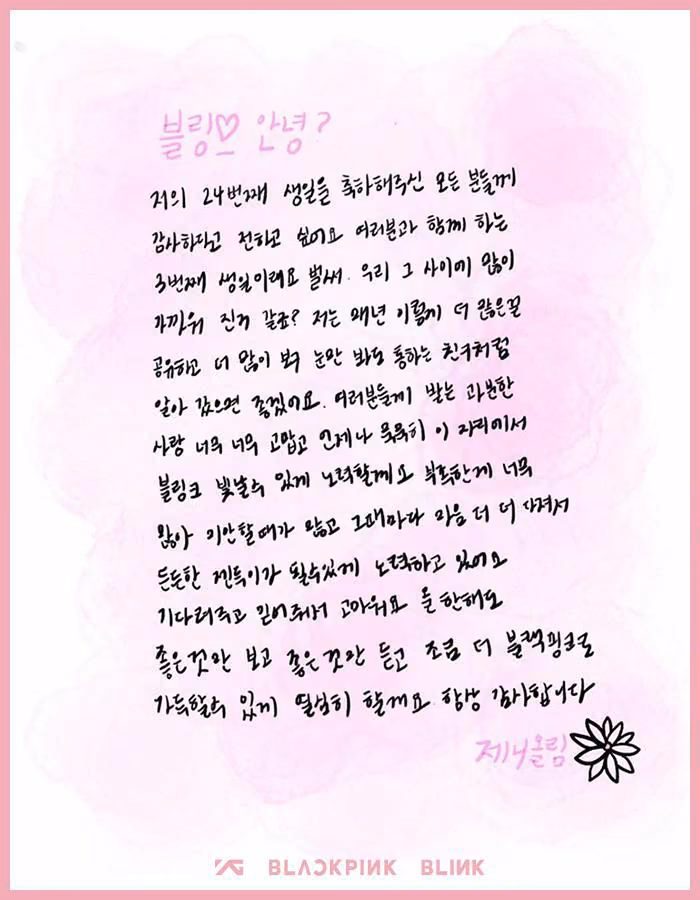 블링♡ 안녕?
저의 24번째 생일을 축하해주신 모든 분들께
감사하다고 전하고 싶어요 여러분과 함께 하는
3번째 생일이래요 벌써. 우리 그 사이에 많이
가까워 진거 같죠? 저는 매년 이렇게 더 많은걸
공유하고 더 많이 봐 눈만 봐도 통하는 친구처럼
알아 갔으면 좋겠어요. 여러분들께 받는 과분한
사랑 너무 너무 고맙고 언제나 묵묵히 이 자리에서
블링크 빛날수 있게 노력할게요 부족한게 너무
많아 미안할때가 많고 그때마다 마음 더 더 다져서
든든한 젠득이가 될수있게 노력하고 있어요
기다려주고 믿어줘서 고마워요 올 한해도
좋은것만 보고 좋은것만 듣고 조금 더 블랙핑크로
가득할수 있게 열심히 할게요. 항상 감사합니다
제니올림
YG BLACKPINK BLINK